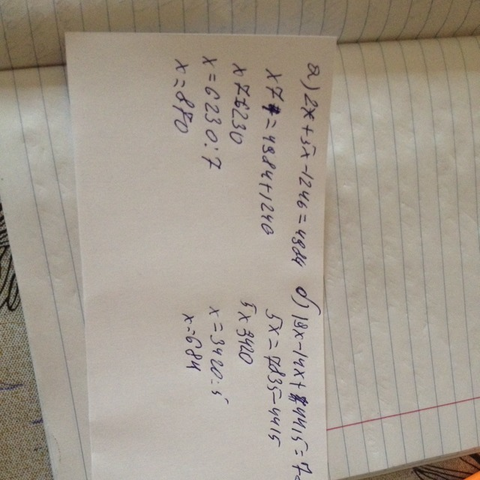 а) 2x+5x-1246=4984
x7=4984+1240
x7=6230
x=6230:7
x=870
б) 19x-14x+4415=7
5x=7835-4415
5x 3420
x=3420:5
x=684